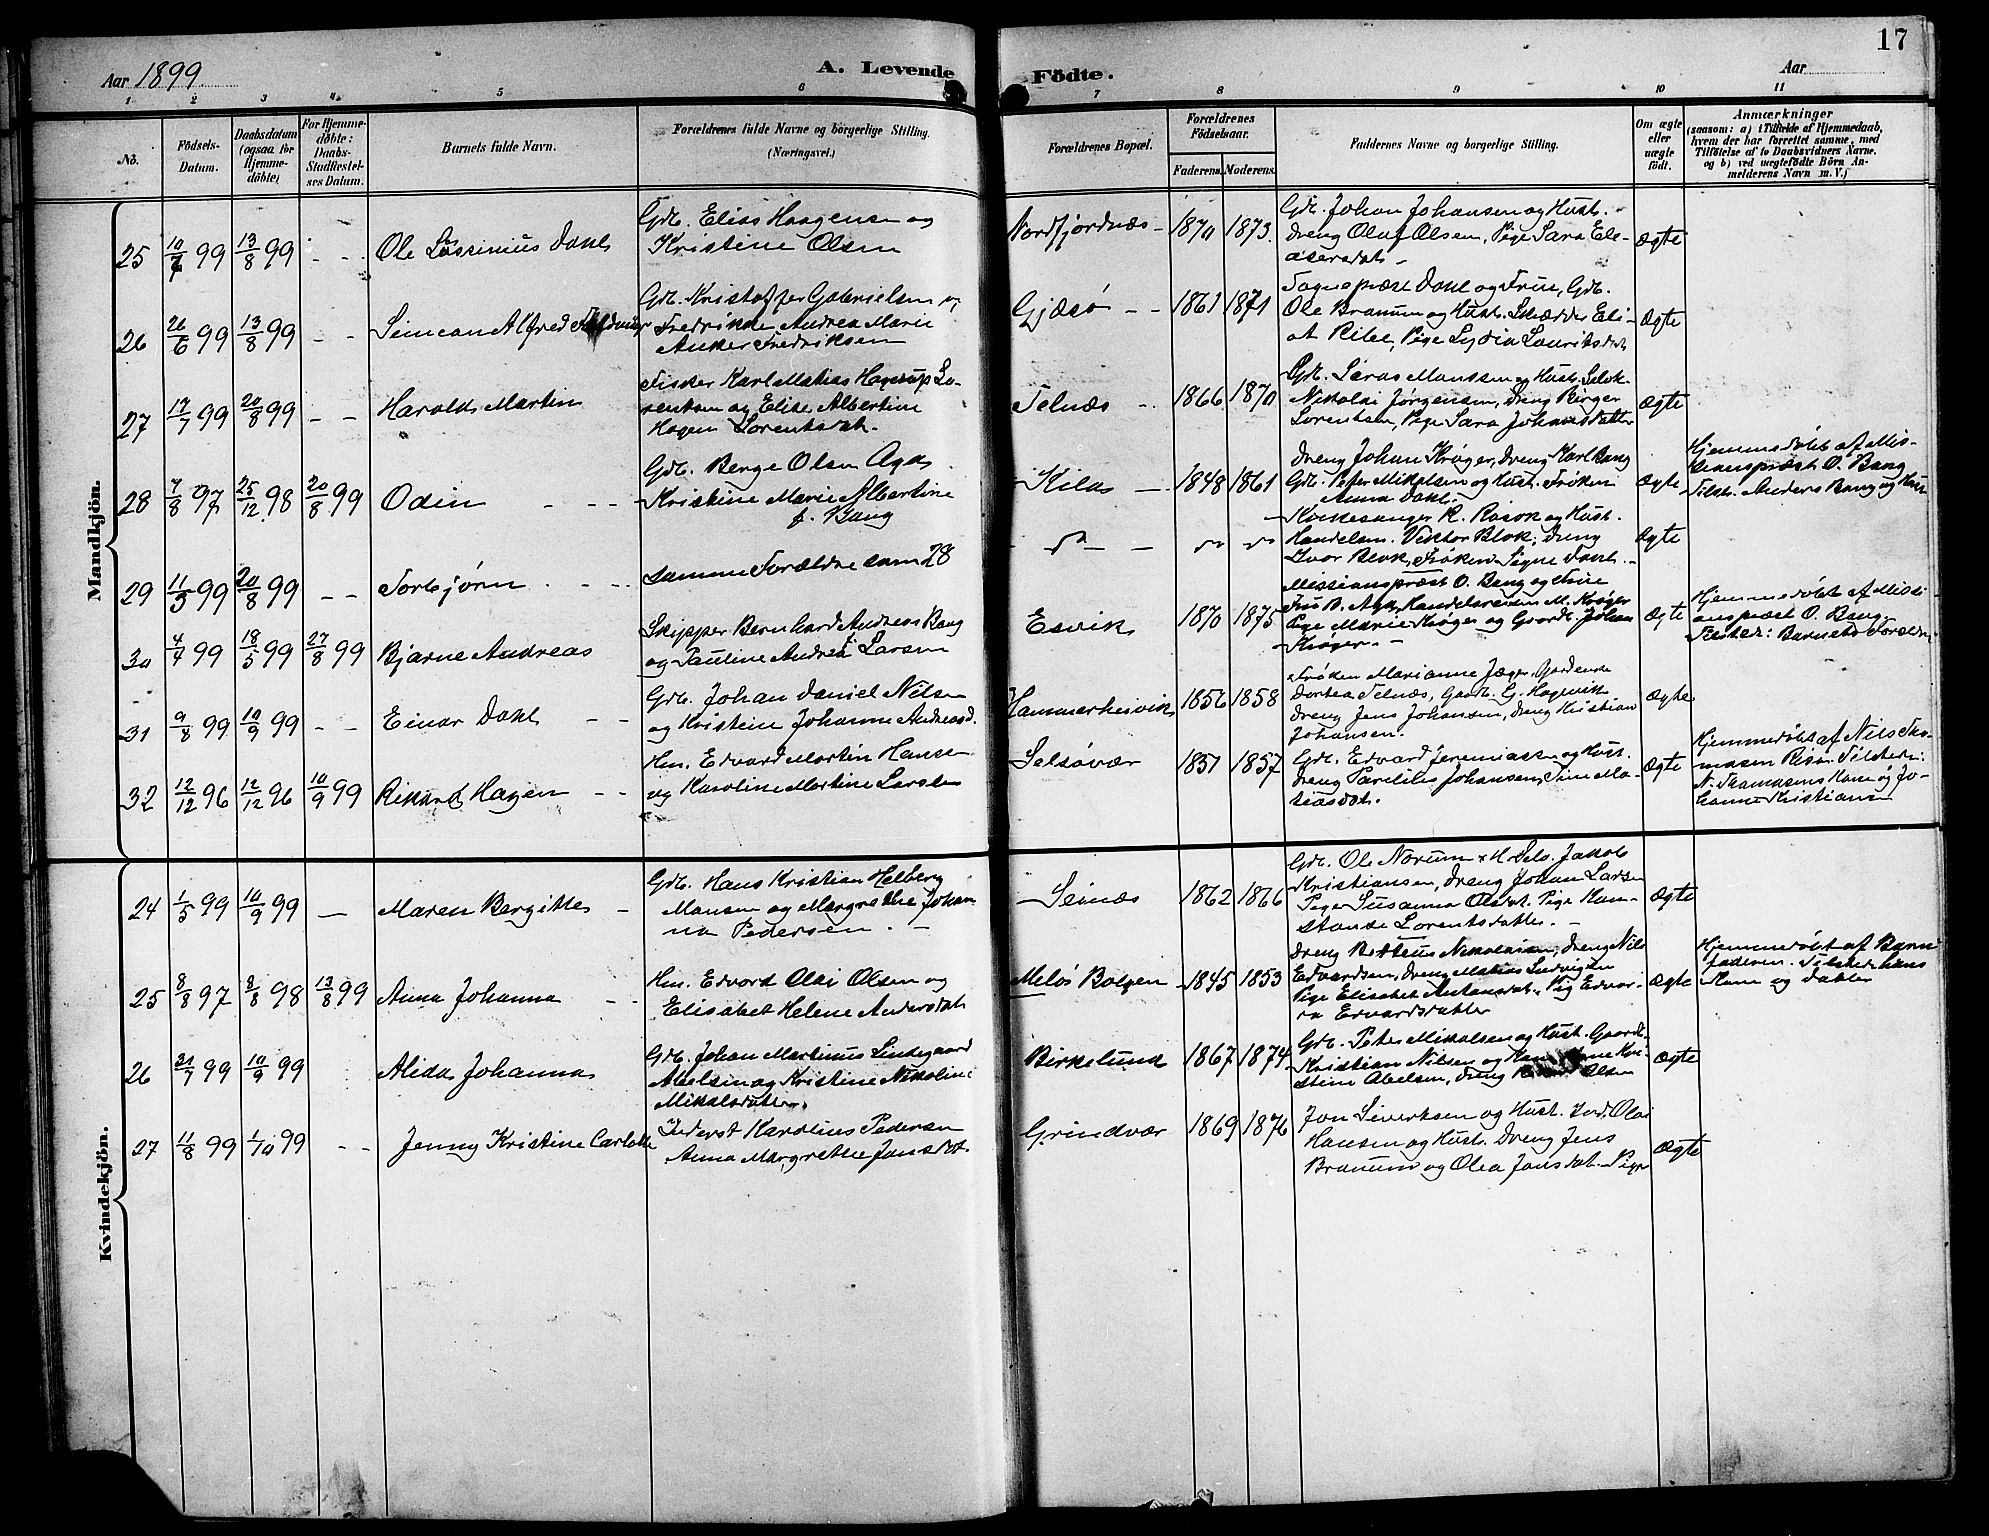 Aar 1899.
A. Levende Födte.
Aar
17
1 2 3 4 5 6 7 8 9 10 11
No.
Födsels-
Datum.
Daabsdatum
(ogsaa for
Hjemme-
döbte)
For Hjemme-
döbte:
Daabs-
Stadfæstel-
ses Datum.
Barnets fulde Navn.
Forældrenes fulde Navne og borgerlige Stilling.
(Næringsvei.)
Forældrenes Bopæl.
Forældrenes
Födselsaar.
Faderens. Moderens.
Faddernes Navne og borgerlige Stilling.
Om ægte
eller
uægte
födt.
Anmærkninger
(saasom: a) i Tilfælde af Hjemmedaab,
hvem der har forrettet samme, med
Tilföielse af to Daabsvidners Navne.
og b) ved uægtefödte Börn An-
melderens Navn m. V.)
Mandkjön.
25 10/7 99 13/8 99 - - Ole Dahl
Gdb. Elias Haagensen og
Kristine Olsen
Nordfjordnæs - 1870 1873.
Gdb. Johan Johansen og Hust.
Dreng Olaf Olsen, Pige Sara Ele-
asersdat -
Ægte
26 26/6 99 13/8 99 - - Simeon Alfred
Gdb. Kristoffer Gabrielsen og
Fredrikke Andrea Marie
Anker Fredriksen
Gjæsö - - 1861 1871
Sogneprest Dahl og Frue, Gdb.
Ole Branum og Hust. Skrædder Eli-
as Ribe, Pige Lydia Lauritsdat
Ægte
27 17/7 99 20/8 99 - - Harald Martin
Fisker Karl Matias Hagerup Lo-
rentsen og Elise Albertine
Hagen Lorentsdat.
Telnæs - 1866 1870
Gdb. Manssen og Hust. Selvk.
Nikolai Jørgensen, Dreng Birger
Lorentsen, Pige Sara Johansdatter
Ægte
28 7/8 97 25/12 98 20/8 99 Odin - - -
Gdb. Berge Olsen Aga
Kristine Marie Albertine
f. Bang
Kilas - 1848 1861
Dreng Johan Krøger, Dreng Karl Bang
Gdb. Peter Mikalsen og Hust. Frøken
Anna Dahl. -
Ægte
Hjemmedøbt af Mis-
sionsprest O. Bang
Tilst. Anders Bang og Hust.
29 11/5 99 20/8 99 - - Torbjørn - - -
Samme Forældre som 28
Kirkesanger R. Rasok og Hust.
Handelsm. Viktor Blok; Dreng
Ivar Blok, Frøken Signe Dahl. -
Ægte
30 4/4 99 18/5 99 27/8 99 Bjarne Andreas
Skipper Bernhard Andreas Bang
og Pauline Andrea Larsen
Esvik 1870 1875
Missionsprest O. Bang og Frue
Fru B. Aga, Handelsreisen M. Krøger
Pige Marie Krøger og Gaardb. Johan
Krøger -
Ægte
Hjemmedøbt af Missi-
onsprest O. Bang.
Tilsted: Barnets Forældre
31 9/8 99 10/9 99 - - Einar Dahl - -
Gdb. Johan Daniel Nilsen
og Kristine Johanne Andreasd.
Hammarhesvik 1856 1858
Frøken Marianne Jæger, Gardende
Dortea Telnæs, Gaardb. G. Hagevik
Dreng Jens Johansen, Dreng Kristian
Johansen.
Ægte
32 12/12 96 12/12 96 10/9 99 Rikard Hagen - -
Hm. Edvard Martin Hansen
og Karoline Martine Larsen
Selsøvær 1851 1857
Gdb. Edvard Jeremiassen og Hust.
Dreng Parelius Johansen, Sine Ma-
tiasdat.
Ægte
Hjemmedøbt af Nils Tho-
masen Risø. Tilstede:
N. Thomasens Kone og Jo-
hanne Kristiansen
Kvindekjön.
24 1/5 99 10/9 99 - Maren Bergitte -
Gdb. Hans Kristian Helberg
Mansen og Margrethe Johan
na Pedersen. -
Seines 1862 1866
Gdb. Ole Norum & H. Selv. Jakob
Kristiansen, Dreng Johan Larsen
Pige Susanna Olsdat. Pige Kon-
stanse Lorentsdatter -
Ægte
25 8/8 97 8/8 98 13/8 99 Anna Johanna - -
Hm. Edvard Olai Olsen og
Elisabet Helene Andersdat
Meløs Bolgen 1845 1853
Dreng Nikolaisen, Dreng Nils
Edvardsen, Dreng Matias Ludvigsen
Pige Elisabet Antonsdat., Pig Edvar-
da Edvardsdatter
Ægte
Hjemmedøbt af Barne
faderen. Tilsted hans
Kone og datter
26 21/7 99 10/9 99 Alida Johanna
Gdb. Johan Martinus Lindegaard
Abelsen og Kristine Nikoline
Mikalsdatter.
Birkelund 1867 1874
Gdb. Peter Mikalsen og Hust. Gaardb.
Kristian Nilsen og Kone, Kri-
stine Abelsen, Dreng Olsen
Ægte
27 11/8 99 1/10 99 - - Jenny Kristine Carlotte
Inderst Karolius Pedersen
Anna Margrethe Jonsdat.
Grindvær 1869 1876
Jon Sivertsen og Hust. Ind. Olai
Hansen og Hust. Dreng Jens
Branum og Olea Jonsdat. Pige
Ægte